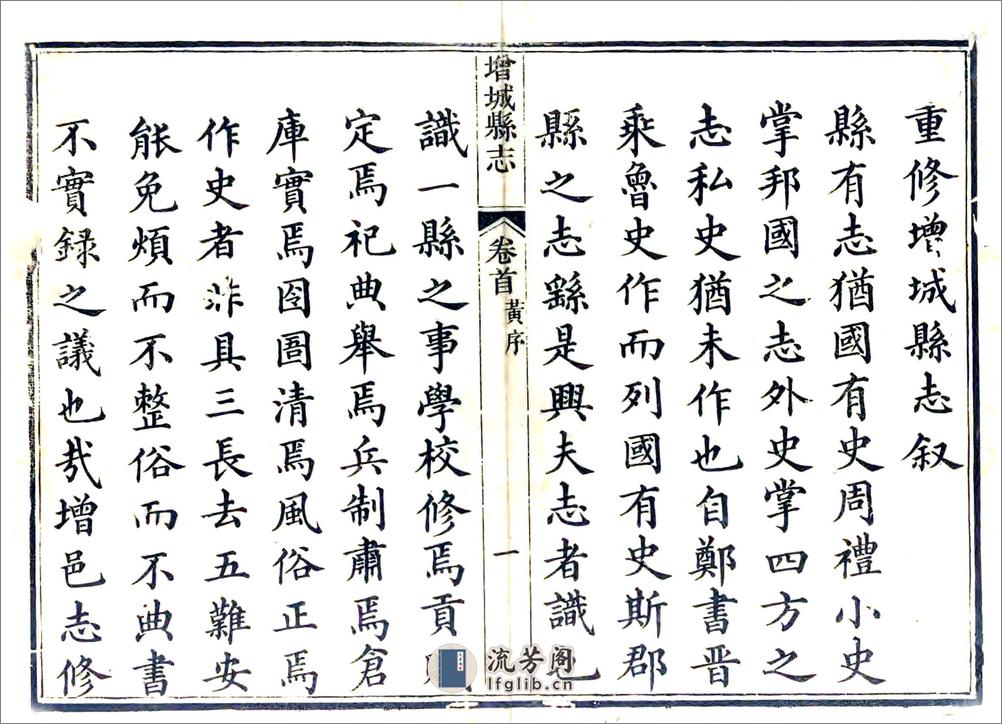 重修增城縣志叙
縣有志猶國有史周禮小史
掌邦國之志外史掌四方之
志私史猶未作也自鄭書晋
乘魯史作而列國有史斯郡
縣之志繇是興夫志者識也
增城縣志 卷首 黃序 一
識一縣之事學校修焉貢
定焉祀典舉焉兵制肅焉倉
庫實焉囹圄清焉風俗正焉
作史者非具三長去五難安
能免煩而不整俗而不典書
不實録之議也哉增邑志修
流芳阁
lfglib.cn